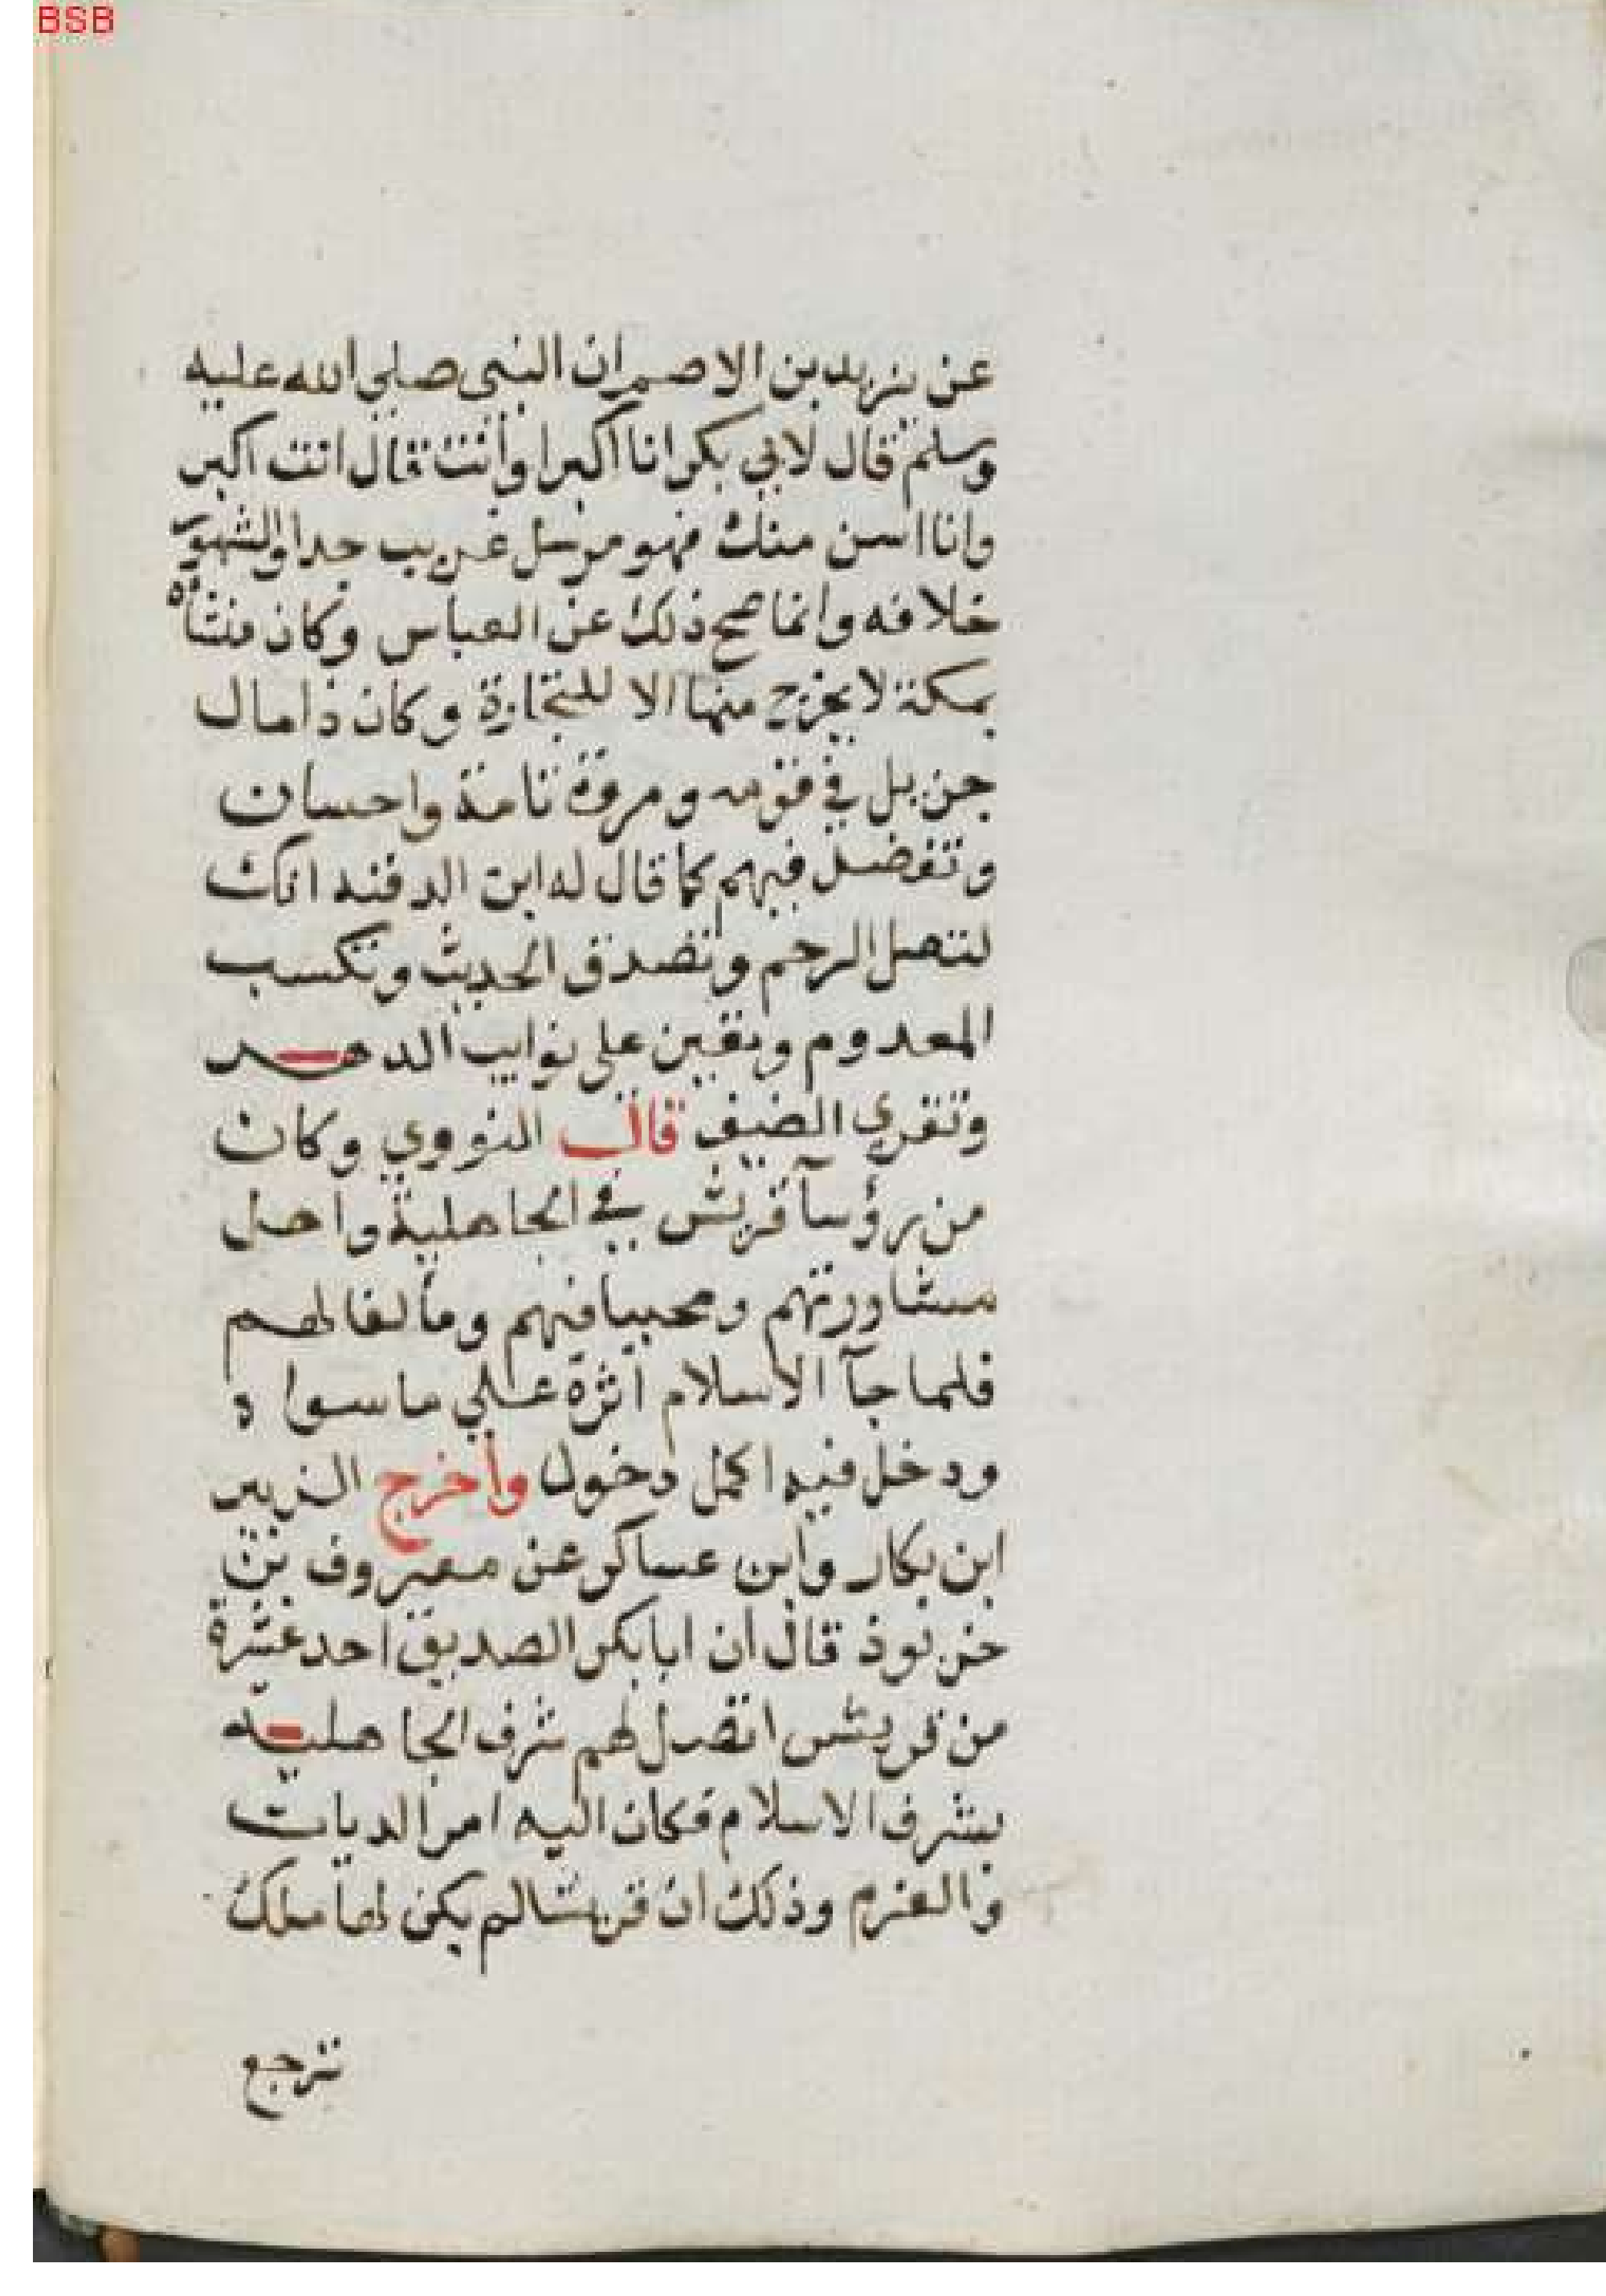 BSB
عن يزيد بن الاصم ان النبي صلى الله عليه
وسلم قال لابي بكر انا اكبر او انت قال انت اكبر
وانا اسن منك فهو مرسل غريب جدا والمشهور
خلافه وانما صح ذلك عن العباس وكان منشاه
بمكة لا يخرج منها الا للتجارة وكان ذا مال
جزيل في قومه ومروة تامة واحسان
وتفضل فيهم كما قال له ابن الدغنه انك
لتصل الرحم وتصدق الحديث وتكسب
المعدوم وتعين على نوايب الدهر
وتقري الضيف قال النووي وكان
من رؤسآ قريش في الجاهلية واهل
مشاورتهم ومحببا فيهم ومألفا لهم
فلما جآ الاسلام اثره علي ما سواه
ودخل فيه اكمل دخول واخرج الزبير
ابن بكار وابن عساكر عن معروف بن
خربوذ قال ان ابا بكر الصديق احد عشرة
من قريش اتصل لهم شرف الجاهلية
بشرف الاسلام فكان اليه امر الديات
والغرم وذلك ان قريشا لم يكن لها ملك
ترجع